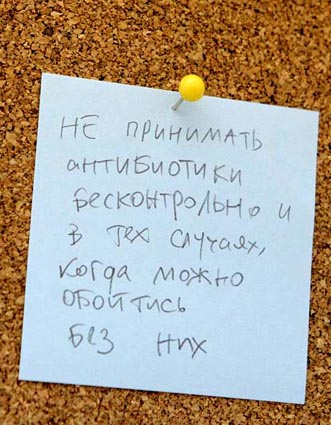 НЕ ПРИНИМАТЬ
АНТИБИОТИКИ
БЕСКОНТРОЛЬНО И
В ТЕХ СЛУЧАЯХ,
КОГДА МОЖНО
ОБОЙТИСЬ
БЕЗ НИХ